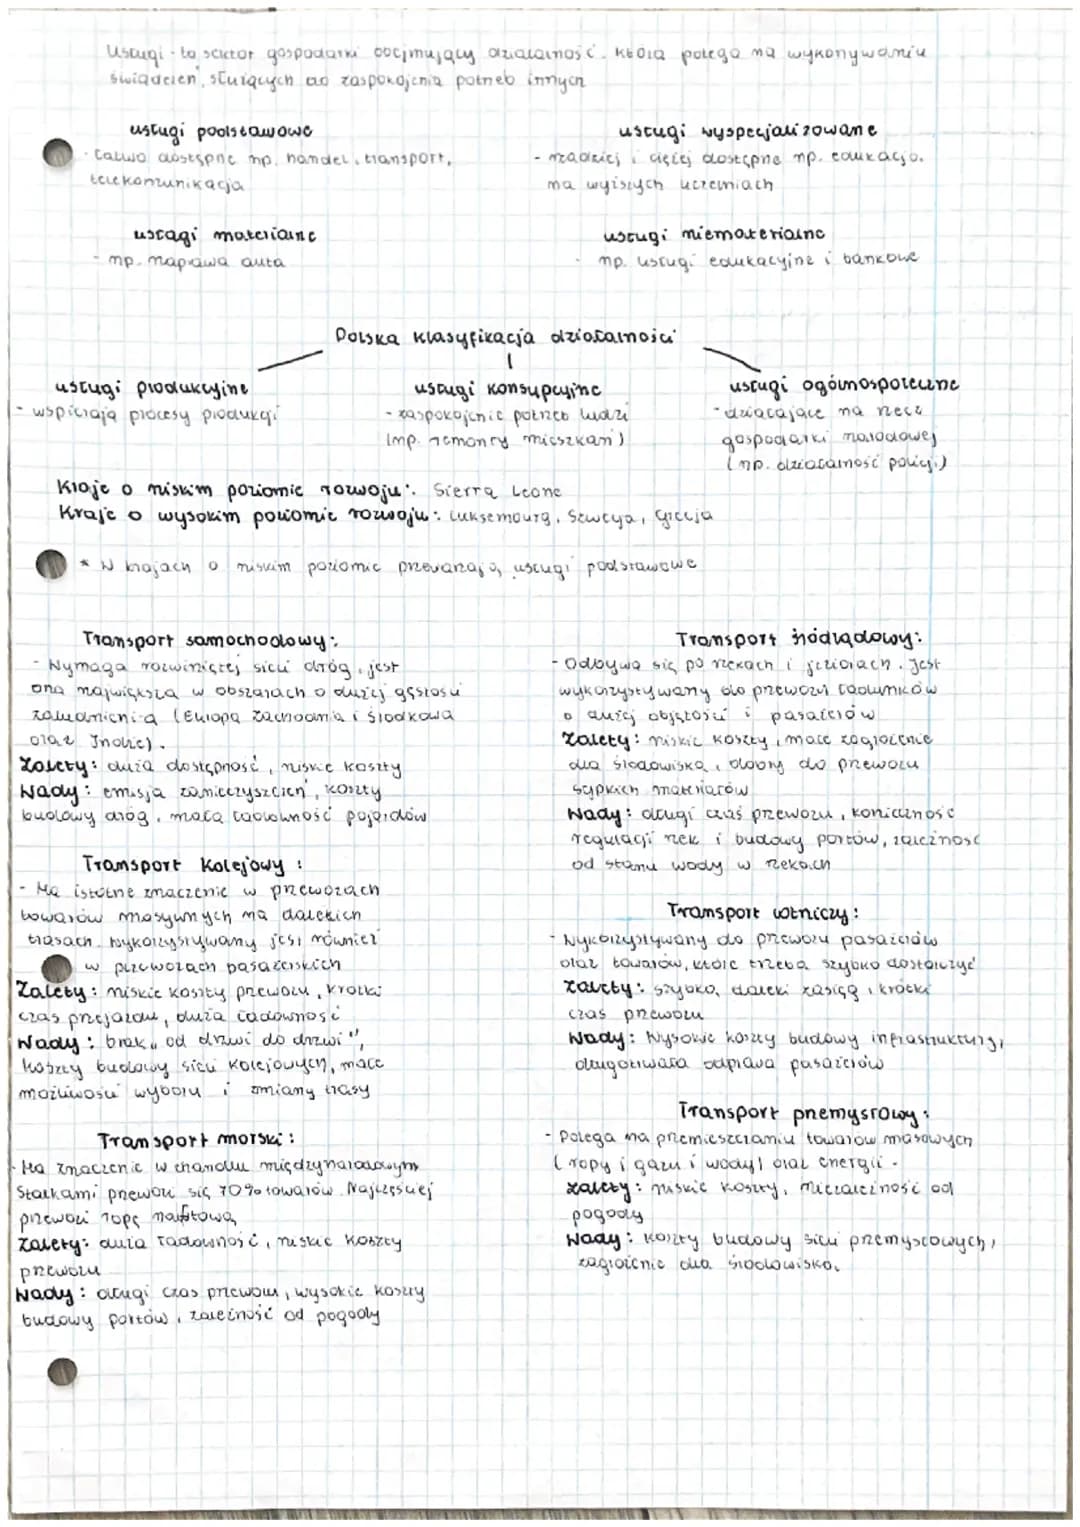 Usługi - to sektor gospodarki obejmujący działalność, która polega na wykonywaniu
świadczeń, służących do zaspokojenia potrzeb innych
usługi podstawowe
- łatwo dostępne np. handel, transport,
telekomunikacja
usługi wyspecjalizowane
- rzadziej i ciężej dostępne np. edukacja
na wyższych uczelniach
usługi materialne
- np. naprawa auta
usługi niematerialne
- np. usługi edukacyjne i bankowe
Polska klasyfikacja działalności
usługi produkcyjne
- wspierają procesy produkcji
usługi konsupcyjne
- zaspokojenie potrzeb ludzi
(np. remonty mieszkań)
usługi ogólnospołeczne
- działające na rzecz
gospodarki narodowej
(np. działalność policji)
Kraje o niskim poziomie rozwoju: Sierra Leone
Kraje o wysokim poziomie rozwoju: Luksemburg, Szwecja, Grecja
* W krajach o niskim poziomie przeważają usługi podstawowe
Transport samochodowy:
- Wymaga rozwiniętej sieci dróg, jest
ona największa w obszarach o dużej gęstości
zaludnienia (Europa zachodnia i środkowa
oraz Indie).
Zalety: duża dostępność, niskie koszty
Wady: emisja zanieczyszczeń, koszty
budowy dróg, mała ładowność pojazdów
Transport Kolejowy:
- Ma istotne znaczenie w przewozach
towarów masywnych na dalekich
trasach. Wykorzystywany jest również
w przewozach pasażerskich
Zalety: niskie koszty przewozu, krótki
czas przejazdu, duża ładowność
Wady: brak „od drzwi do drzwi",
koszty budowy sieci kolejowych, małe
możliwości wyboru i zmiany trasy
Transport morski:
- Ma znaczenie w chandlu międzynarodowym
Statkami przewozi się 70% towarów. Najczęściej
przewozi ropę naftową
Zalety: duża ładowność, niskie koszty
przewozu
Wady: długi czas przewozu, wysokie koszty
budowy portów, zależność od pogody
Transport śródlądowy:
- Odbywa się po rzekach i jeziorach. Jest
wykorzystywany do przewozu ładunków
o dużej objętości i pasażerów
Zalety: niskie koszty, małe zagrożenie
dla środowiska, dobry do przewozu
sypkich materiałów
Wady: długi czas przewozu, konieczność
regulacji rzek i budowy portów, zależność
od stanu wody w rzekach
Transport lotniczy:
- Wykorzystywany do przewozu pasażerów
oraz towarów, które trzeba szybko dostarczyć
Zalety: szybko, daleki zasięg, krótki
czas przewozu
Wady: Wysokie koszty budowy infrastruktury,
długotrwała odprawa pasażerów
Transport przemysłowy:
- Polega na przemieszczaniu towarów masowych
(ropy i gazu i wody) oraz energii.
Zalety: niskie koszty, niezależność od
pogody
Wady: koszty budowy sieci przemysłowych,
zagrożenie dla środowiska.